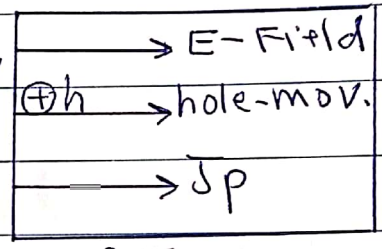 → E-Field
⊕h → hole-mov.
→ Jp